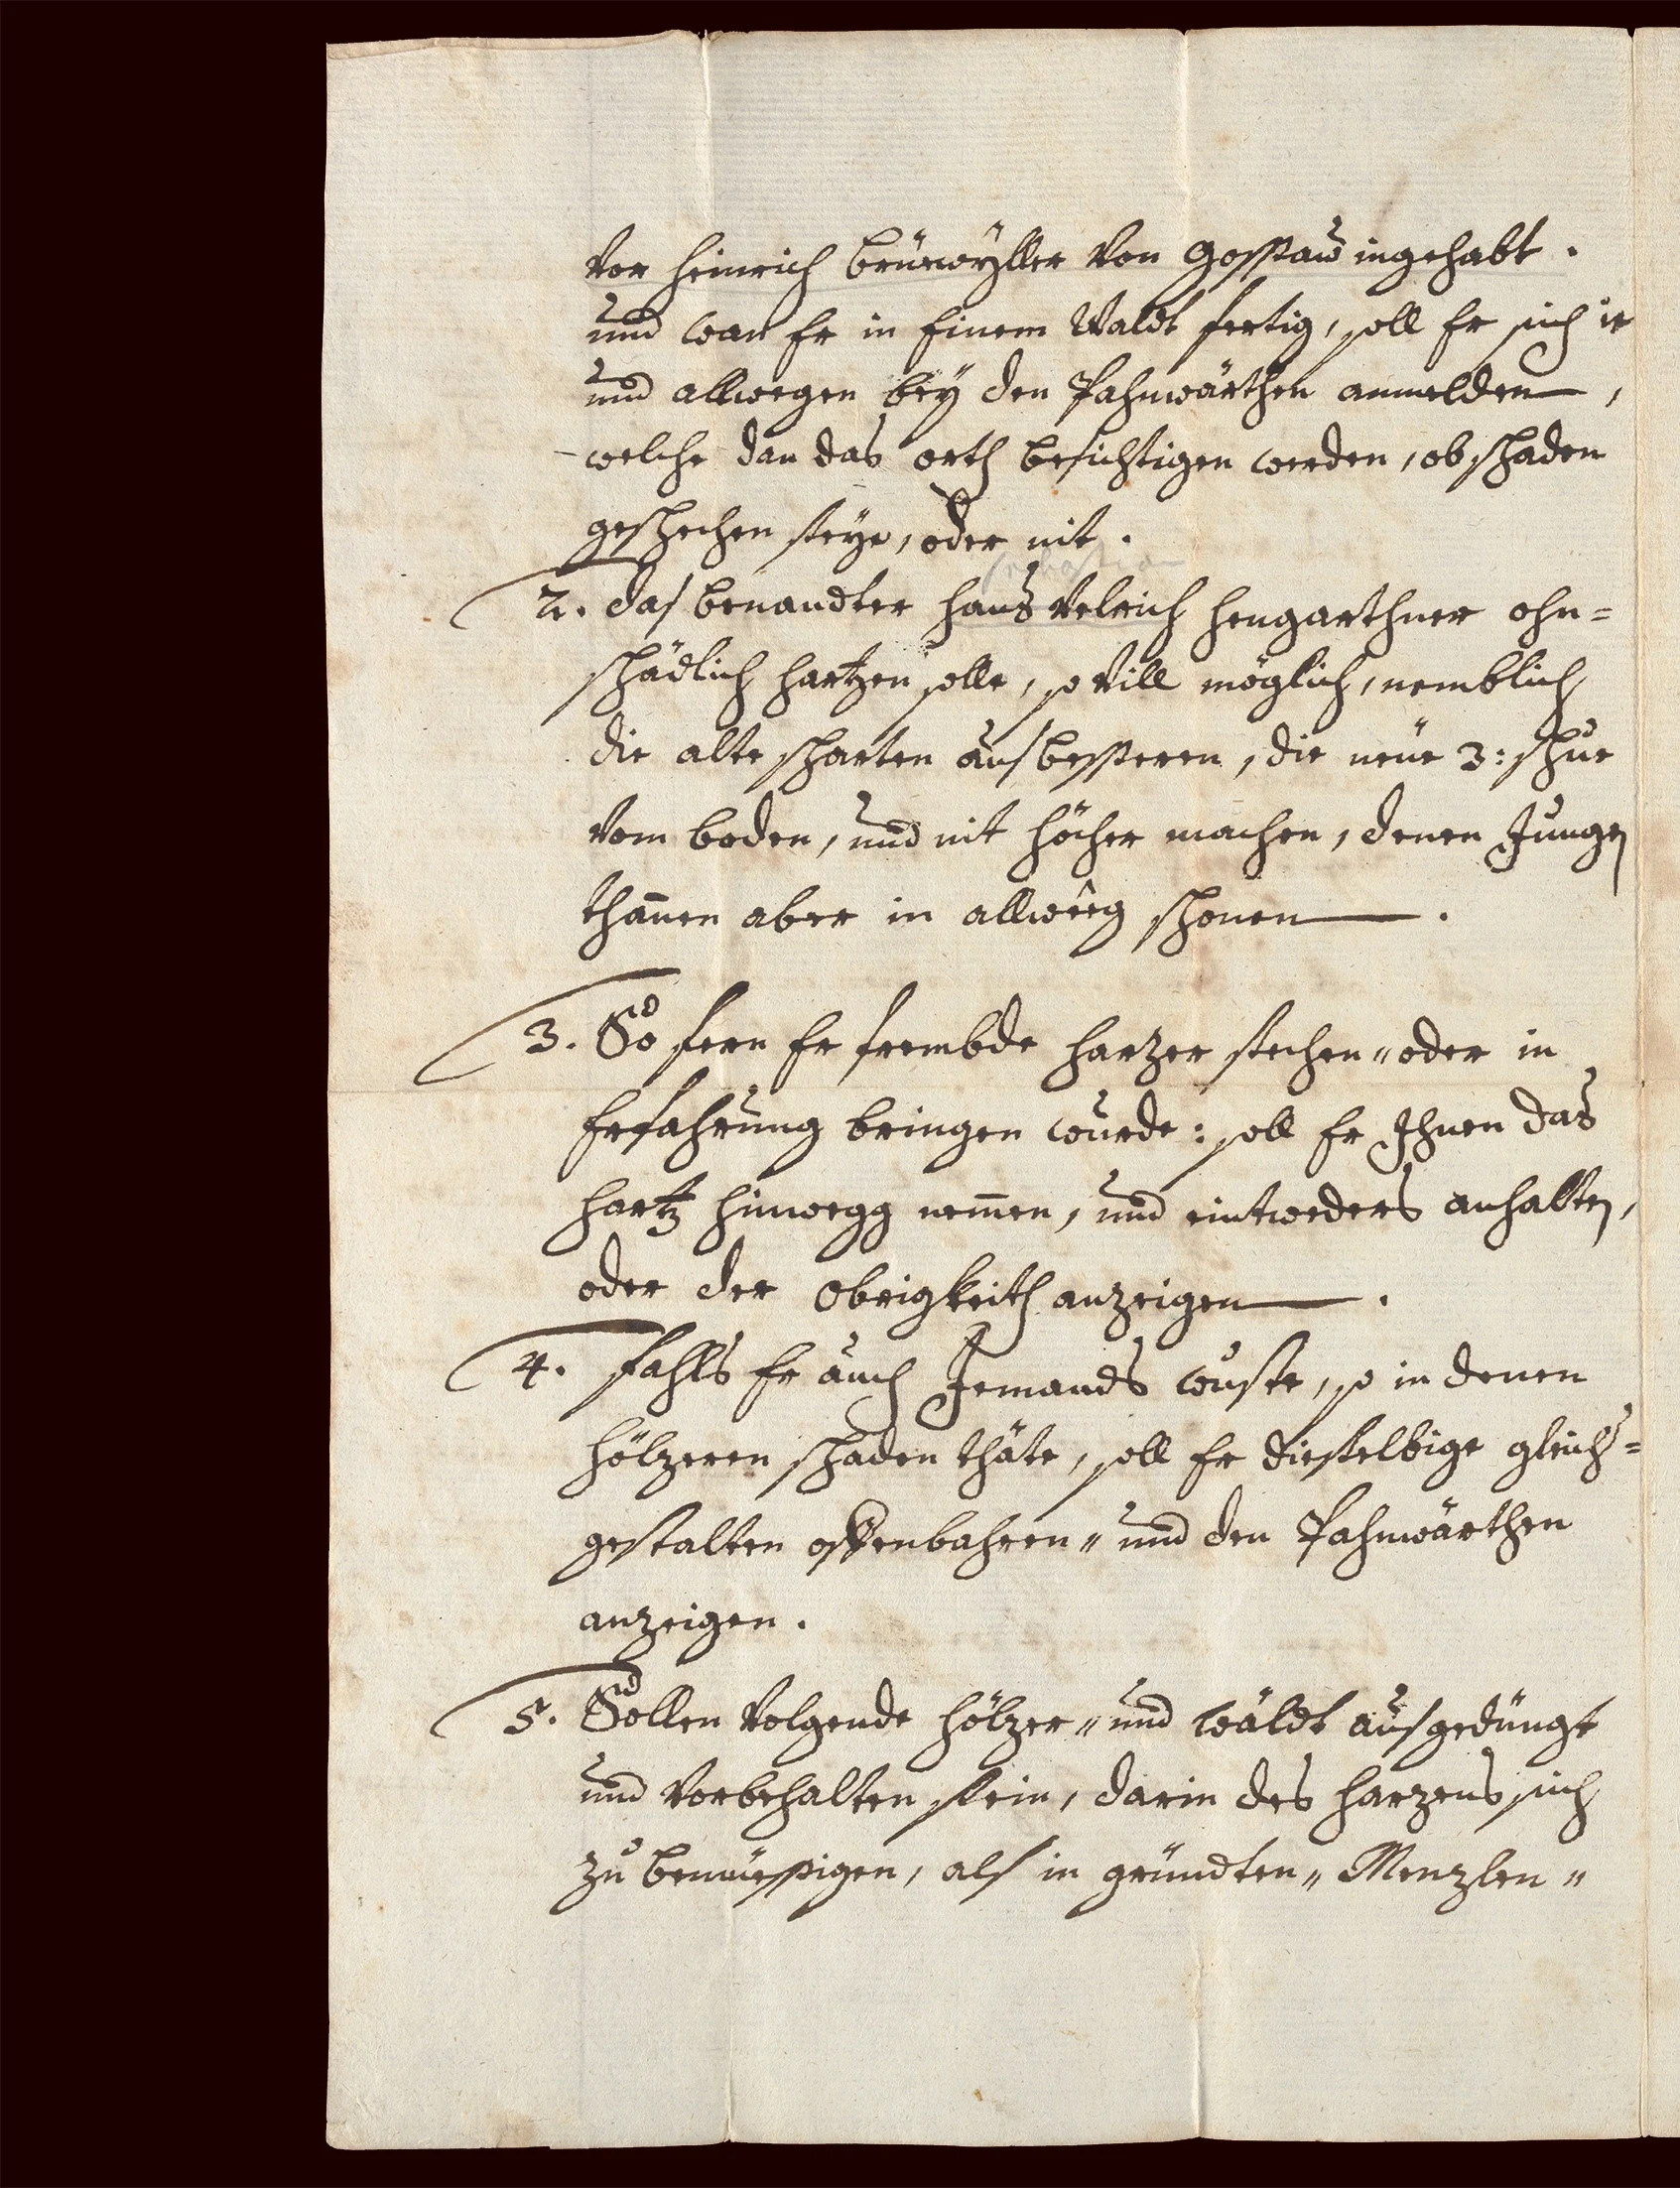 vor Heinrich Brünwÿller von Gossaw ingehabt.
und wan Er in Einem Waldt fertig, soll Er sich ie
und allwegen beÿ den Pahnwärthen anmelden,
welche dan das orth besichtigen werden, ob schaden
geschechen seÿe, oder nit.
2. das benandter Hans Velrich Hengarthner ohn=
schädlich hartzen solle, so vill möglich, nemblich
die alte scharten ausbesseren, die neüe 3: schue
vom boden, und nit höcher machen, denen Jungen
thannen aber in allweeg schonen.
3. So fern Er frembde Harzer sechen" oder in
Erfahrung bringen wurde: soll Er Ihnen das
Hartz hinwegg nemmen, und eintweders anhalten,
oder der Obrigkeith anzeigen.
4. fahls Er auch Jemands wuste, so in denen
Hölzeren schaden thäte, soll Er dieselbige gleich=
gestalten offenbahren" und den Pahnwärthen
anzeigen.
5. Sollen volgende Hölzer" und wäldt ausgedüngt
und vorbehalten sein, darin des harzens sich
zu bemüessigen, als in gründten" Menzlen"